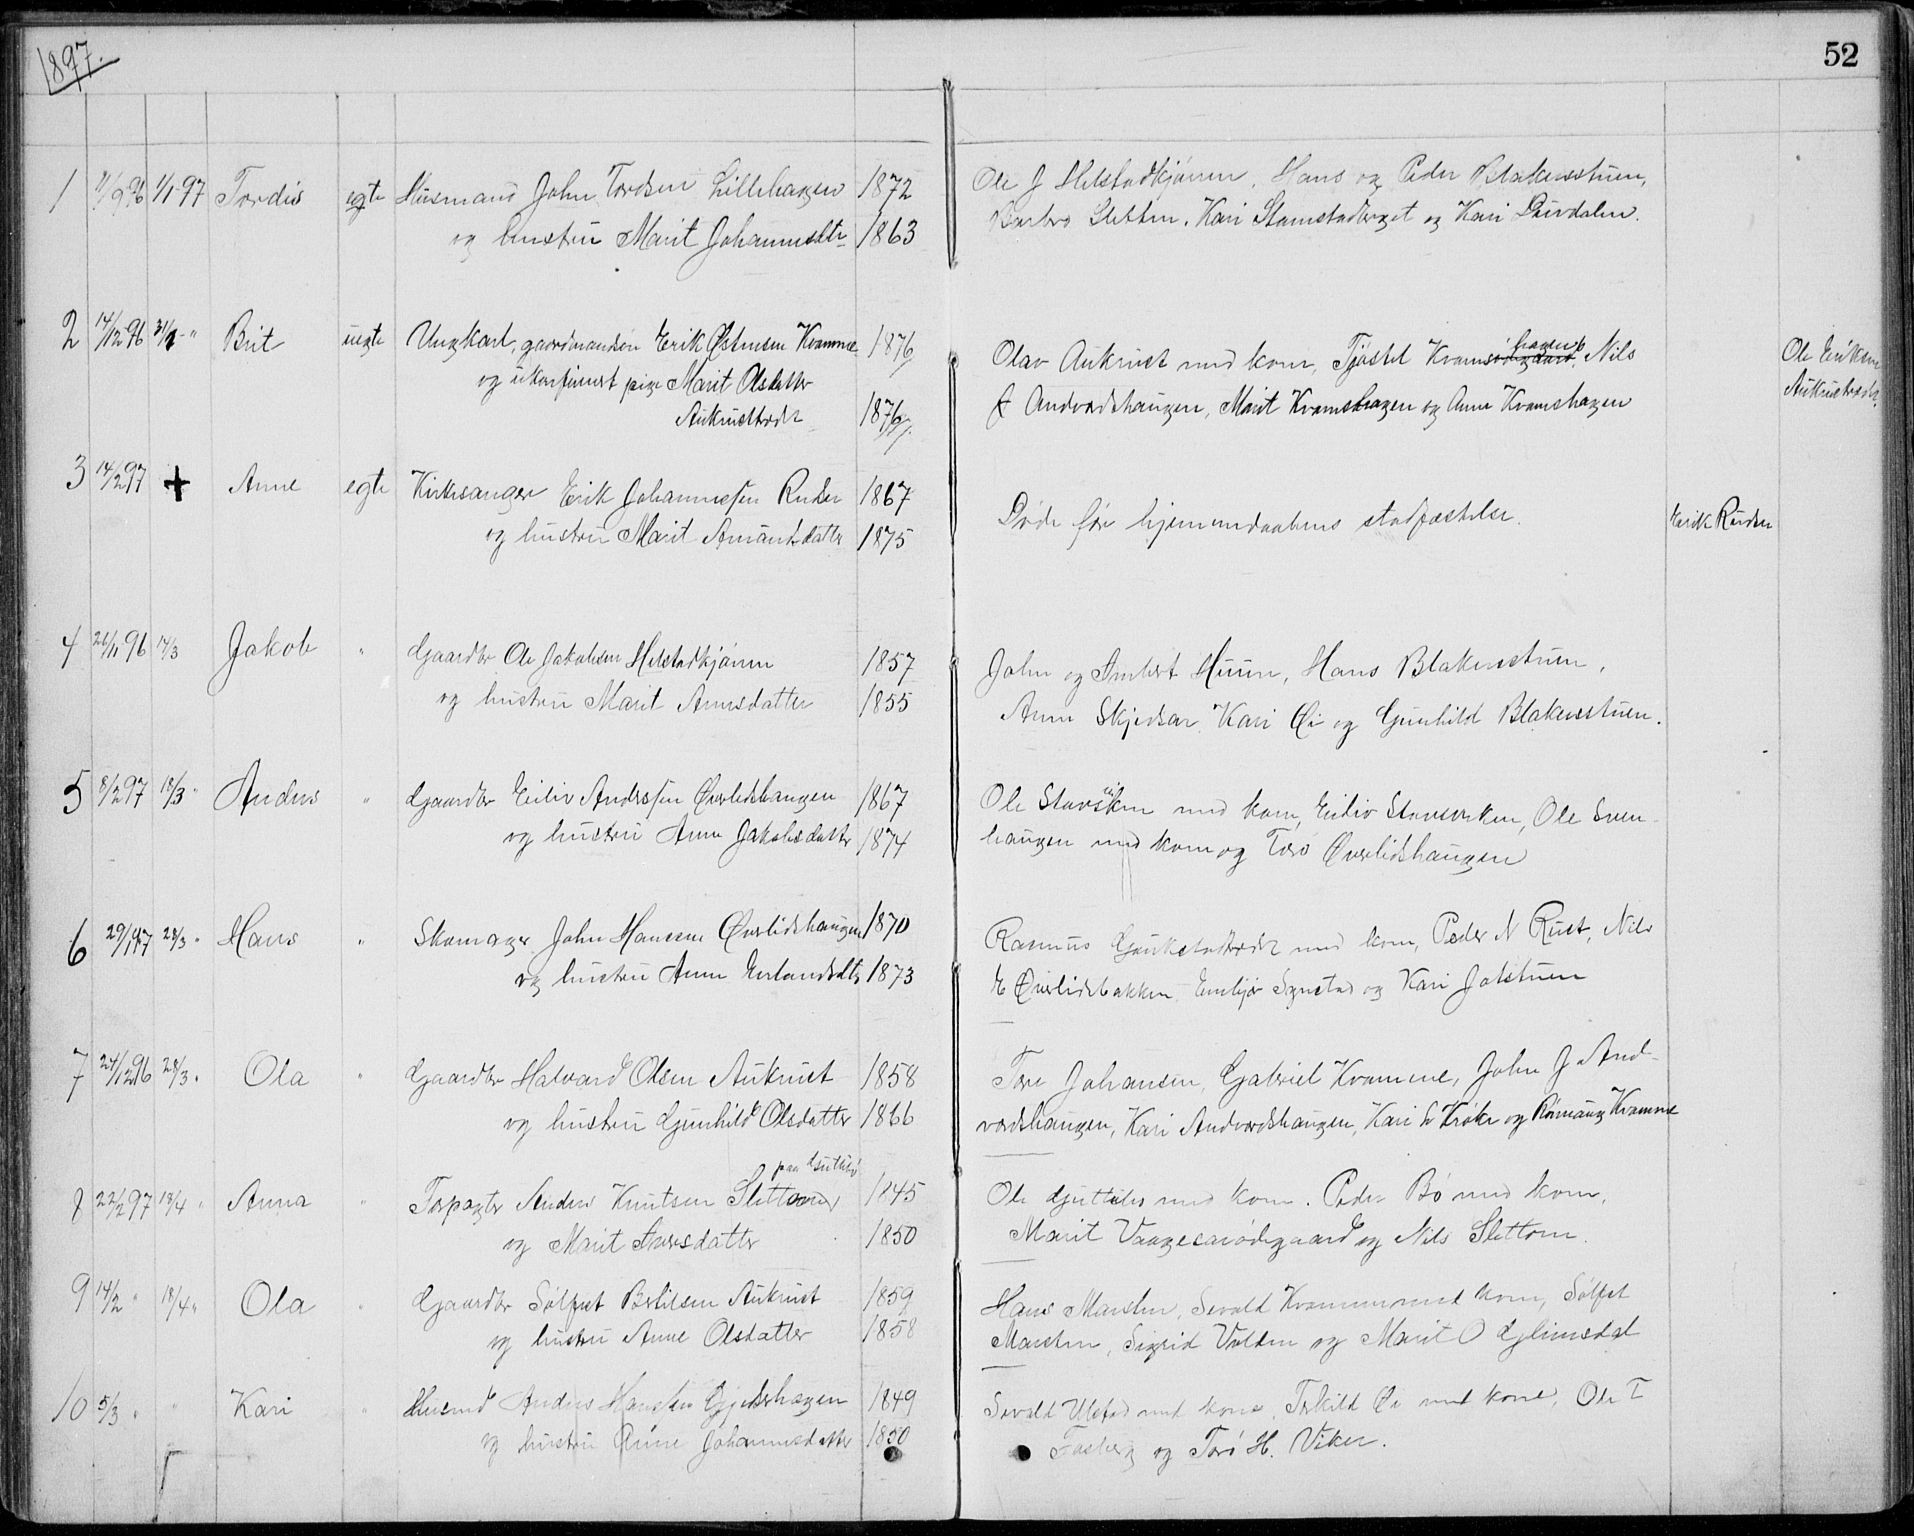 1897.
52
1 11/9 96 1/1 97 Tordis egte Husmand John Tordsen Lillehagen 1872
og hustru Marit Johannesdtr 1863
Ole J Helstadkjønn, Hans og Peder Blakersstuen,
Barbro Sletten, Kari Stamstadberget og Kari Duvdalen.
2 14/12 96 31/1 " Brit uegte Ungkarl, gaardmandsøn Erik Østensen Kramme 1876
og ukonfirmert pige Marit Olsdatter
Aukrusttrædet 1876
Olav Aukrust med kone, Tjøstel Kvamshagen, Nils
J Andvordshaugen, Marit Kvamshagen og Anne Kvamshagen
Ole Eriksen
Aukrusttrædet
3 14/2 97 + Anne egte Kirkesanger Erik Johannessen Ruden 1867
og hustru Marit Amundsdatter 1875
Døde før hjemmedaabens stadfæstelse.
Erik Ruden
4 26/11 96 14/3 Jakob " Gaardbr Ole Jakobsen Helstadkjønn 1857
og hustru Marit Arnesdatter 1855
John og Imbert Huun, Hans Blakersstuen,
Anne Skjedsar, Kari Øi og Gunhild Blakersstuen.
5 8/2 97 18/3 " Anders " Gaardbr Eiliv Anderssen Øverlidshaugen 1867
og hustru Anne Jakobsdatter 1874
Ole Stavsviken med kone, Eiliv Stavsviken, Ole Sven-
haugen med kone og Torø Øverlidshaugen
6 29/1 97 28/3 " Hans " Skomager John Hansen Øverlidshaugen 1870
og hustru Anne Erlandsdtr 1873
Rasmus Gaukstadtrædet med kone, Peder N Rust, Nils
E Øverlidsbakken, Embjør Synstad og Kari Jotstuen
7 24/12 96 28/3 " Ola " Gaardbr Halvard Olsen Aukrust 1858
og hustru Gunhild Olsdatter 1866
Tore Johansen, Gabriel Kvamme, John J And-
vordshaugen, Kari Andvordshaugen, Kari Kroken og Rønnaug Kvamme
8 22/2 97 18/4 " Anna " Forpagter Anders Knutsen Slettom 1845
og Marit Iversdatter 1850
Ole med kone. Peder Bø med kone,
Marit Vaagesarødegaard og Nils Slettom.
9 14/2 " 18/4 " Ola " Gaardbr Sølfest Bertilsen Aukrust 1859
og hustru Anne Olsdatter 1858
Hans Marsten, Sevald Kvamme med kone, Sølfest
Marsten, Sigrid Volden og Marit O Glimsdal
10 5/3 " " Kari " Husmd Anders Hanssen Gjedshagen 1849
og hustru Johannesdatter 1850
Sevald Ulstad med kone, Torkild Øi med kone, Ole T
Fosberg og Torø H. Viken.